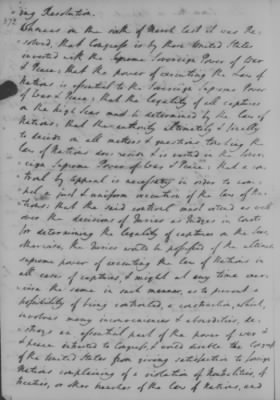 ing Resolution.
372
Whereas on the sixth of March last it was Re-
solved, that Congress is by these United States
invested with the Supreme Sovereign Power of War
& Peace; that the power of executing the Law of
Nations is essential to the Sovereign Supreme Power
of War & Peace; that the legality of all captures
on the high Seas must be determined by the Law of
Nations; that the authority ultimately & finally
to decide on all matters & questions touching the
Law of Nations does reside & is vested in the Sover-
eign Supreme Power of War & Peace; that a con-
trol by appeal is necessary in order to com-
pel a just & uniform execution of the Law of Na-
tions; that the said control must extend as well
over the decisions of Juries as Judges in Courts
for determining the legality of captures on the Sea;
otherwise, the Juries would be possessed of the ultimate
supreme power of executing the Law of Nations in
all cases of captures, & might at any time exer-
cise the same in such manner, as to prevent a
possibility of being controlled, a construction, which
involves many inconveniences & absurdities, de-
stroys an essential part of the power of war &
& peace intrusted to Congress, & would disable the Congress
of the United States from giving satisfaction to foreign
Nations complaining of a violation of Neutralities, of
Treaties, or other breaches of the Law of Nations, and